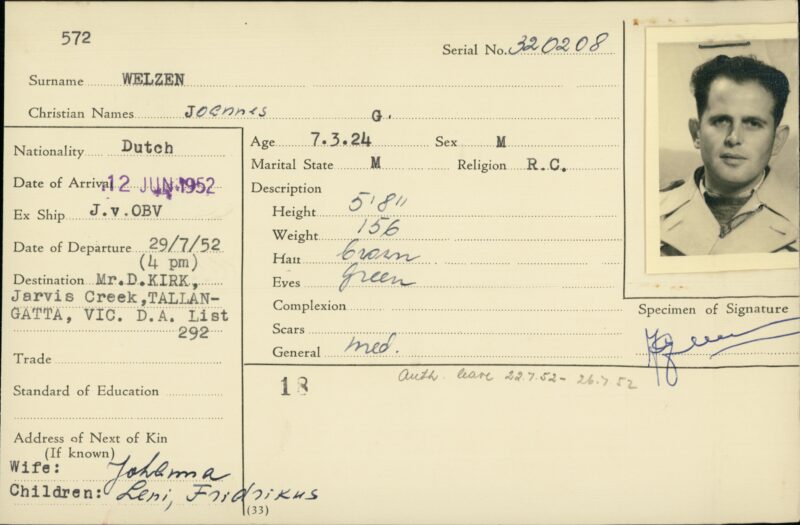 572
Serial No. 320208
Surname WELZEN
Christian Names Joannes G.
Nationality Dutch
Date of Arrival 12 JUN 1952
Ex Ship J.v.OBV
Date of Departure 29/7/52
(4 pm)
Destination Mr.D.KIRK,
Jarvis Creek,TALLAN-
GATTA, VIC. D.A. List
292
Trade
Standard of Education
Address of Next of Kin
(If known)
Wife: Johanna
Children: Leni, Fridrikus
Age 7.3.24 Sex M
Marital State M Religion R.C.
Description
Height 5'8"
Weight 156
Hair brown
Eyes Green
Complexion
Scars
General med.
18
Auth. leave 22.7.52 - 26.7.52
(33)
Specimen of Signature